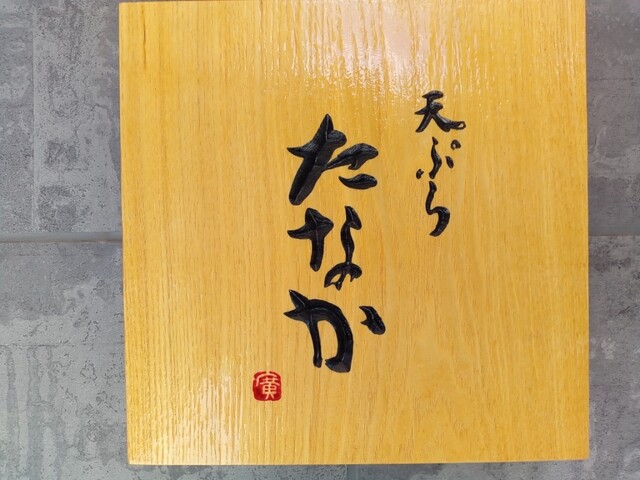 天ぷら
たなか
廣